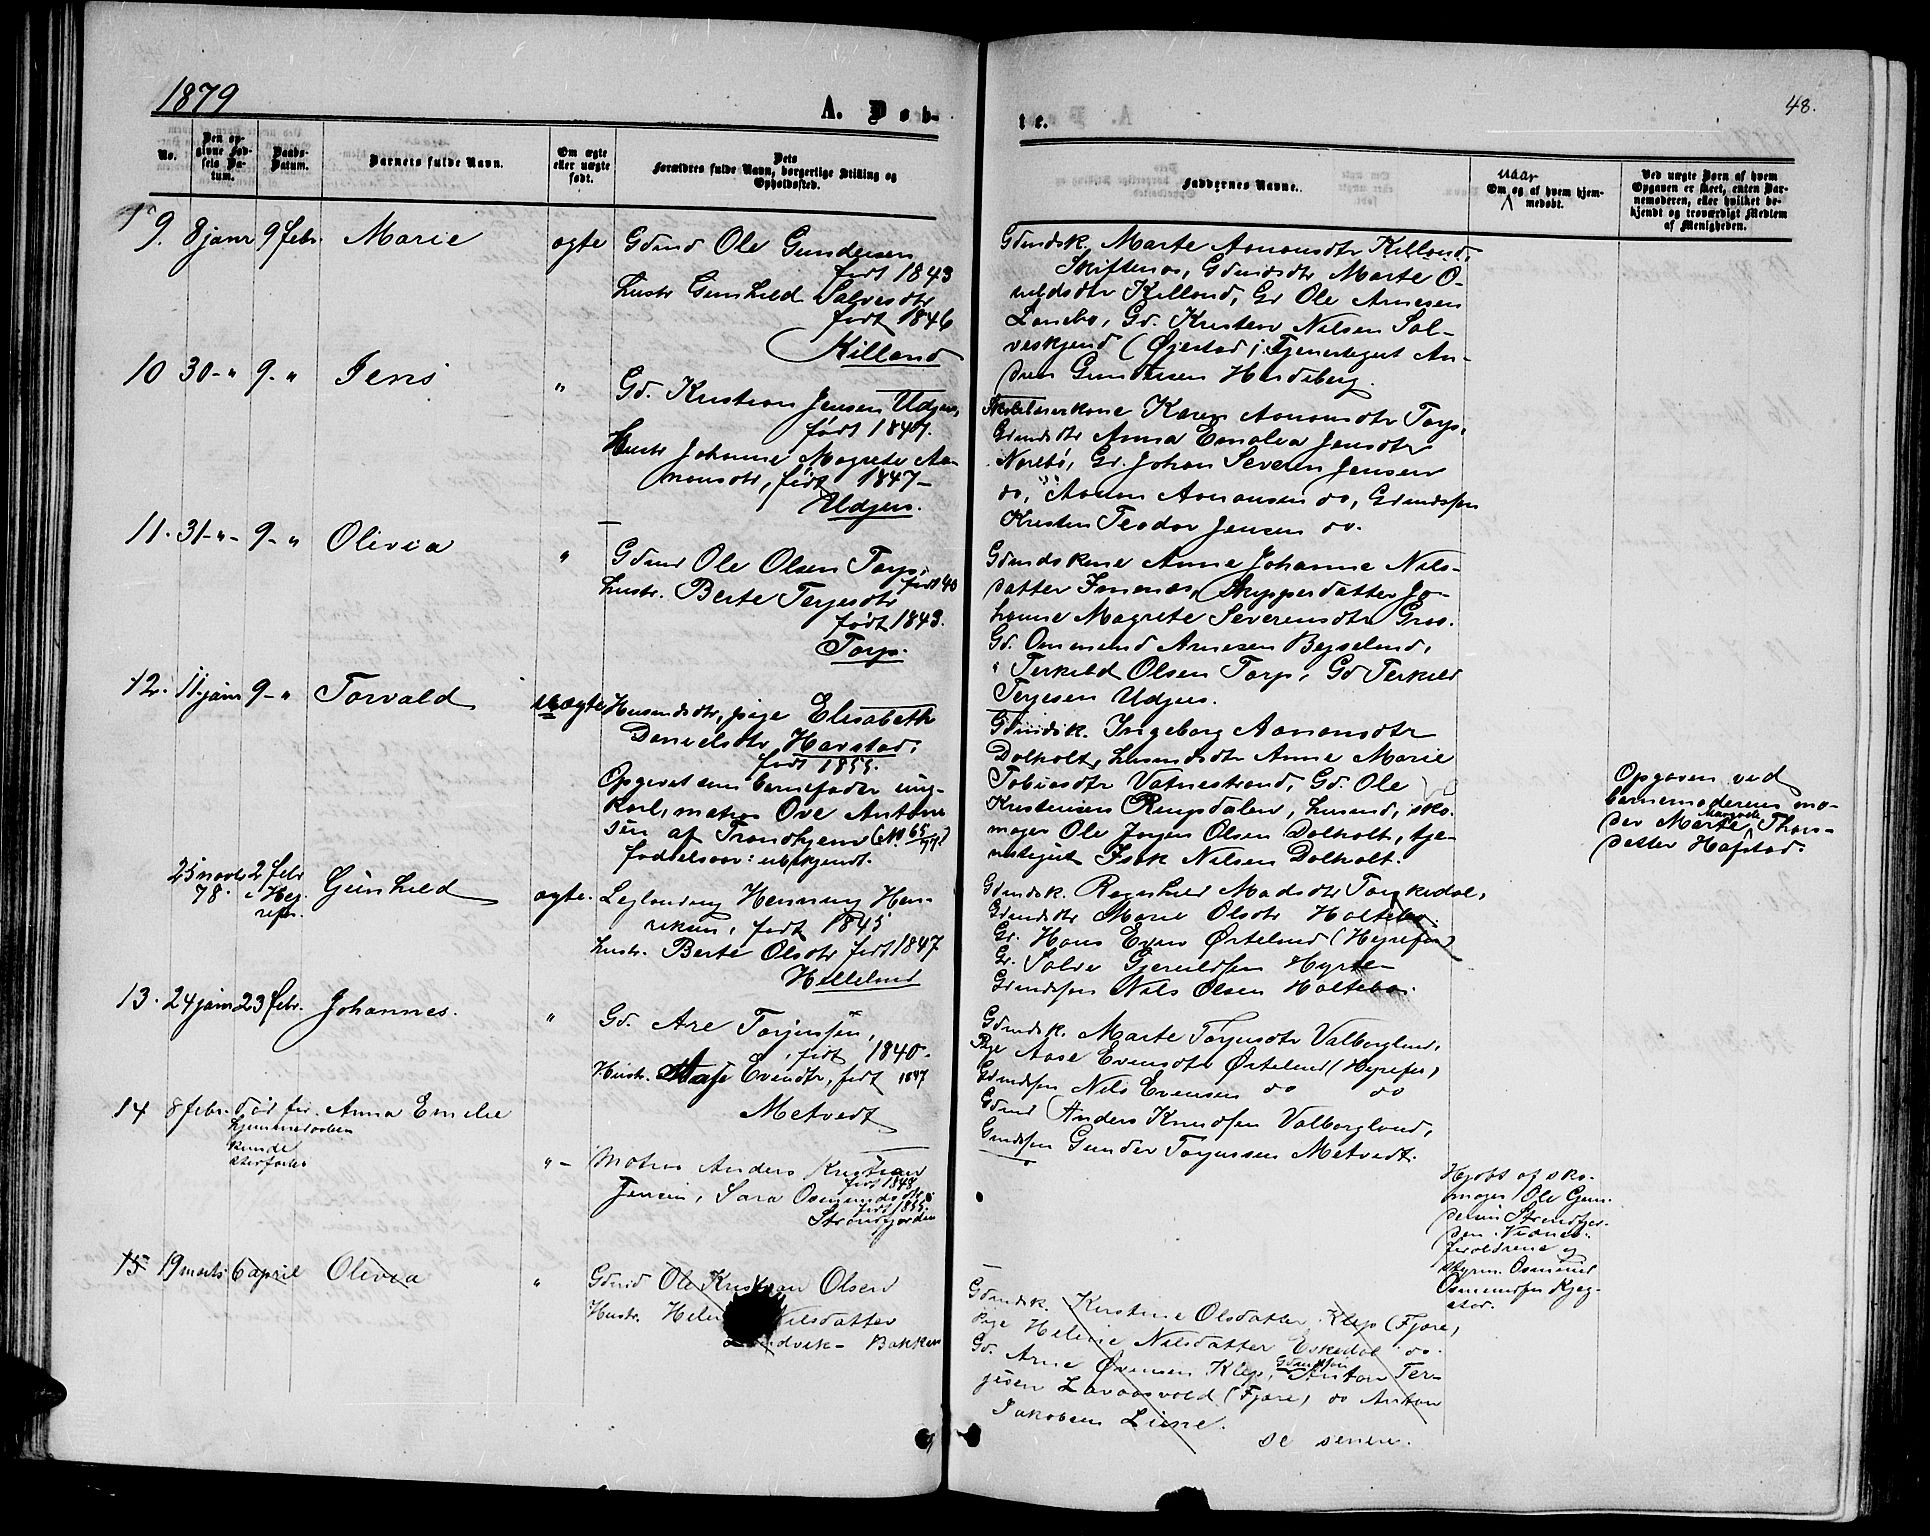 1879
A. Døb-
te.
48.
No.
Den op-
givne Fød-
sels Da-
tum.
Daabs-
Datum.
Barnets fulde Navn.
Om ægte
eller uægte
født.
Dets
Forældres fulde Navn, borgerlige Stilling og
Opholdssted.
Faddernes Navne.
naar
Om og af hvem hjem-
medøbt.
Ved uægte Børn af hvem
Opgaven er skeet, enten Bar-
nemoderen, eller hvilket be-
kjendt og troværdigt Medlem
af Menigheden.
9. 8 janr 9 febr. Marie ægte
Gdmd Ole Gundersen
født 1843
hustr Gunhild Salvesdtr
født 1846
Killand
Gdmdsk. Marte Aanonsdtr Killand,
Skiftenes, Gdmdsdtr Marte O-
Killand, Gd. Ole Arnesen
Lonebo, Gd. Kristen Nilsen Sal-
veskjend (Øjestad), Tjenestegut An-
ders Gundersen Hesleberg.
10 30-" 9-" Jens "
Gd. Kristian Jensen Udjus,
født 1847.
Hustr Johanne Magrete Aa-
nonsdtr, født 1847-
Udjus.
Skolelærerkone Karen Aanonsdtr Torp,
Gdmdsdtr Anna Emalia Jensdtr
Norebø, Gd. Johan Severin Jensen
do, " Aanon Aanonsen do, Gdmdssøn
Kristen Teodor Jensen do.
11. 31-"- 9-" Olivia "
Gdmd Ole Olsen Torp,
født 40
hustr. Berte Terjesdtr
født 1843.
Torp.
Gdmdskone Anne Johanne Nils-
datter Imenes, Skipperdatter Jo-
hanne Magrete Severinsdtr Gros.
Gd. Ommund Arnesen Bejseland,
" Terkild Olsen Torp, Gd Terkild
Terjesen Udjus.
12. 11. janr 9-" Torvald uægte
Husmdsdtr, pige Elisabeth
Danielsdtr Havstad,
født 1855.
Opgivet som barnefader ung-
karl, matros Ove Anton-
sen af Trondhjem (N. 65/77)
fødselsaar: ubekjendt.
Gdmdsk. Ingeborg Aanonsdtr
Dolholt, husmdsdtr Anne Marie
Tobiasdtr Vatnestrand, Gd. Ole
Kristensen Ringdalen, husmd, sko-
mager Ole Jørgen Olsen Dolholt, tje-
nestegut Isak Nilsen Dolholt.
Opgaven ved
barnemoderens mo-
der Marte Margrete Thors-
datter Hafstad.
25 novbr 78. 2 febr i Hejrefos Gunhild ægte.
Leglænding Henning Hen-
riksen, født 1845
hustr. Berte Olsdtr født 1847
Hellelund
Gdmdsk. Ragnhild Madsdtr Torskedal,
Gdmdsdtr Marie Olsdtr Holtebo.
Gd. Hans Even Ørtelund (Hejrefos)
Gd. Salve Gjeruldsen Hyrte-
Gdmdssøn Nils Olsen Holtebo.
13. 24 janr 23 febr. Johannes. "
Gd. Are Torjussen,
født 1840.
Hustr. Aase Evensdtr, født 1847
Metvedt
Gdmdsk. Marte Torjusdtr Valborglund,
Pige Aase Evensdtr Ørtelund (Hejrefos)
Gdmdssøn Nils Evensen do do
Gdmd Anders Knudsen Valborglund,
Gmdssøn Gunder Torjussen Metvedt.
14 8 febr. død før Anna Emelie "-
hjemmedaaben
kunde
stadfæstes
Matros Anders Kristian
født 1848
Jensen, Sara Osmundsdtr
født 1855.
Strandfjorden
Hjdbt af sko-
mager Ole Gun-
dersen Strandfjor-
den. Vidner:
forældrene og
styrm. Osmund
Osmundsen Rjeg-
stad.
15 19 marts 6 april Olivia "
Gdmd Ole Kristian Olsen
Hustr. Helene Nilsdatter
Landvik - Bakken
Gdmdsk. Kirstine Olsdatter Klep (Fjære)
Pige Helene Nilsdatter Eskedal do.
Gd. Arne Øvensen Klep, Gdmdssøn Anton Ter-
jesen Lavoosvold (Fjære) do Anton
Jakobsen Liene.
se senere.